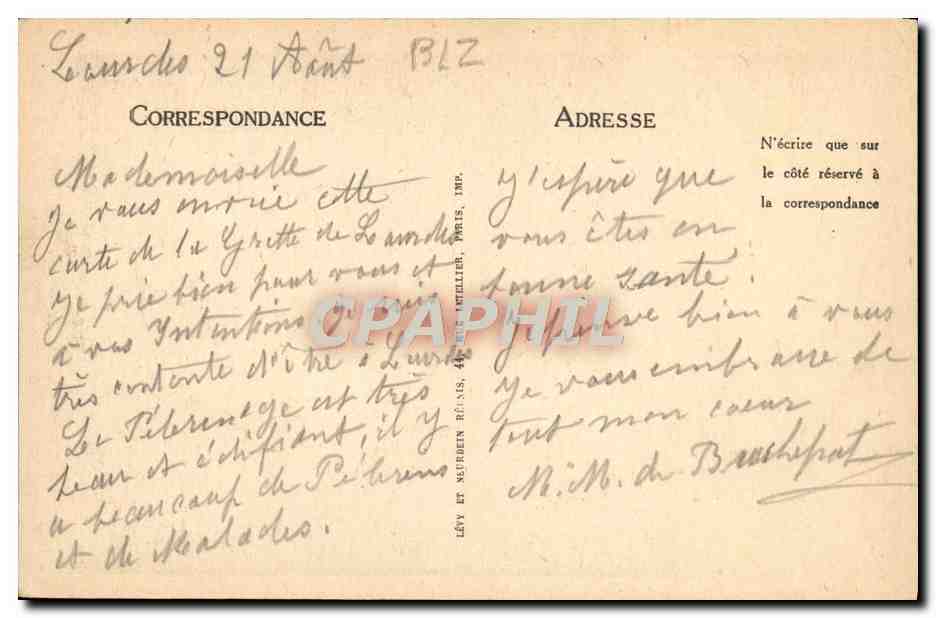 Lourdes 21 Août BLZ
CORRESPONDANCE
Mademoiselle
Je vous envoie cette
carte de la Grotte de Lourdes
Je prie bien pour vous et
à vos Intentions, je suis
très contente d'être à Lourdes
Le Pélerinage est très
beau et édifiant, il y
a beaucoup de Pélerins
et de Malades.
LÉVY ET NEURDEIN RÉUNIS, 44, RUE LETELLIER, PARIS, IMP.
ADRESSE
N'écrire que sur
le côté réservé à
la correspondance
J'espère que
vous êtes en
bonne santé.
Je pense bien à vous
Je vous embrasse de
tout mon cœur
M. M. de
CPAPHIL